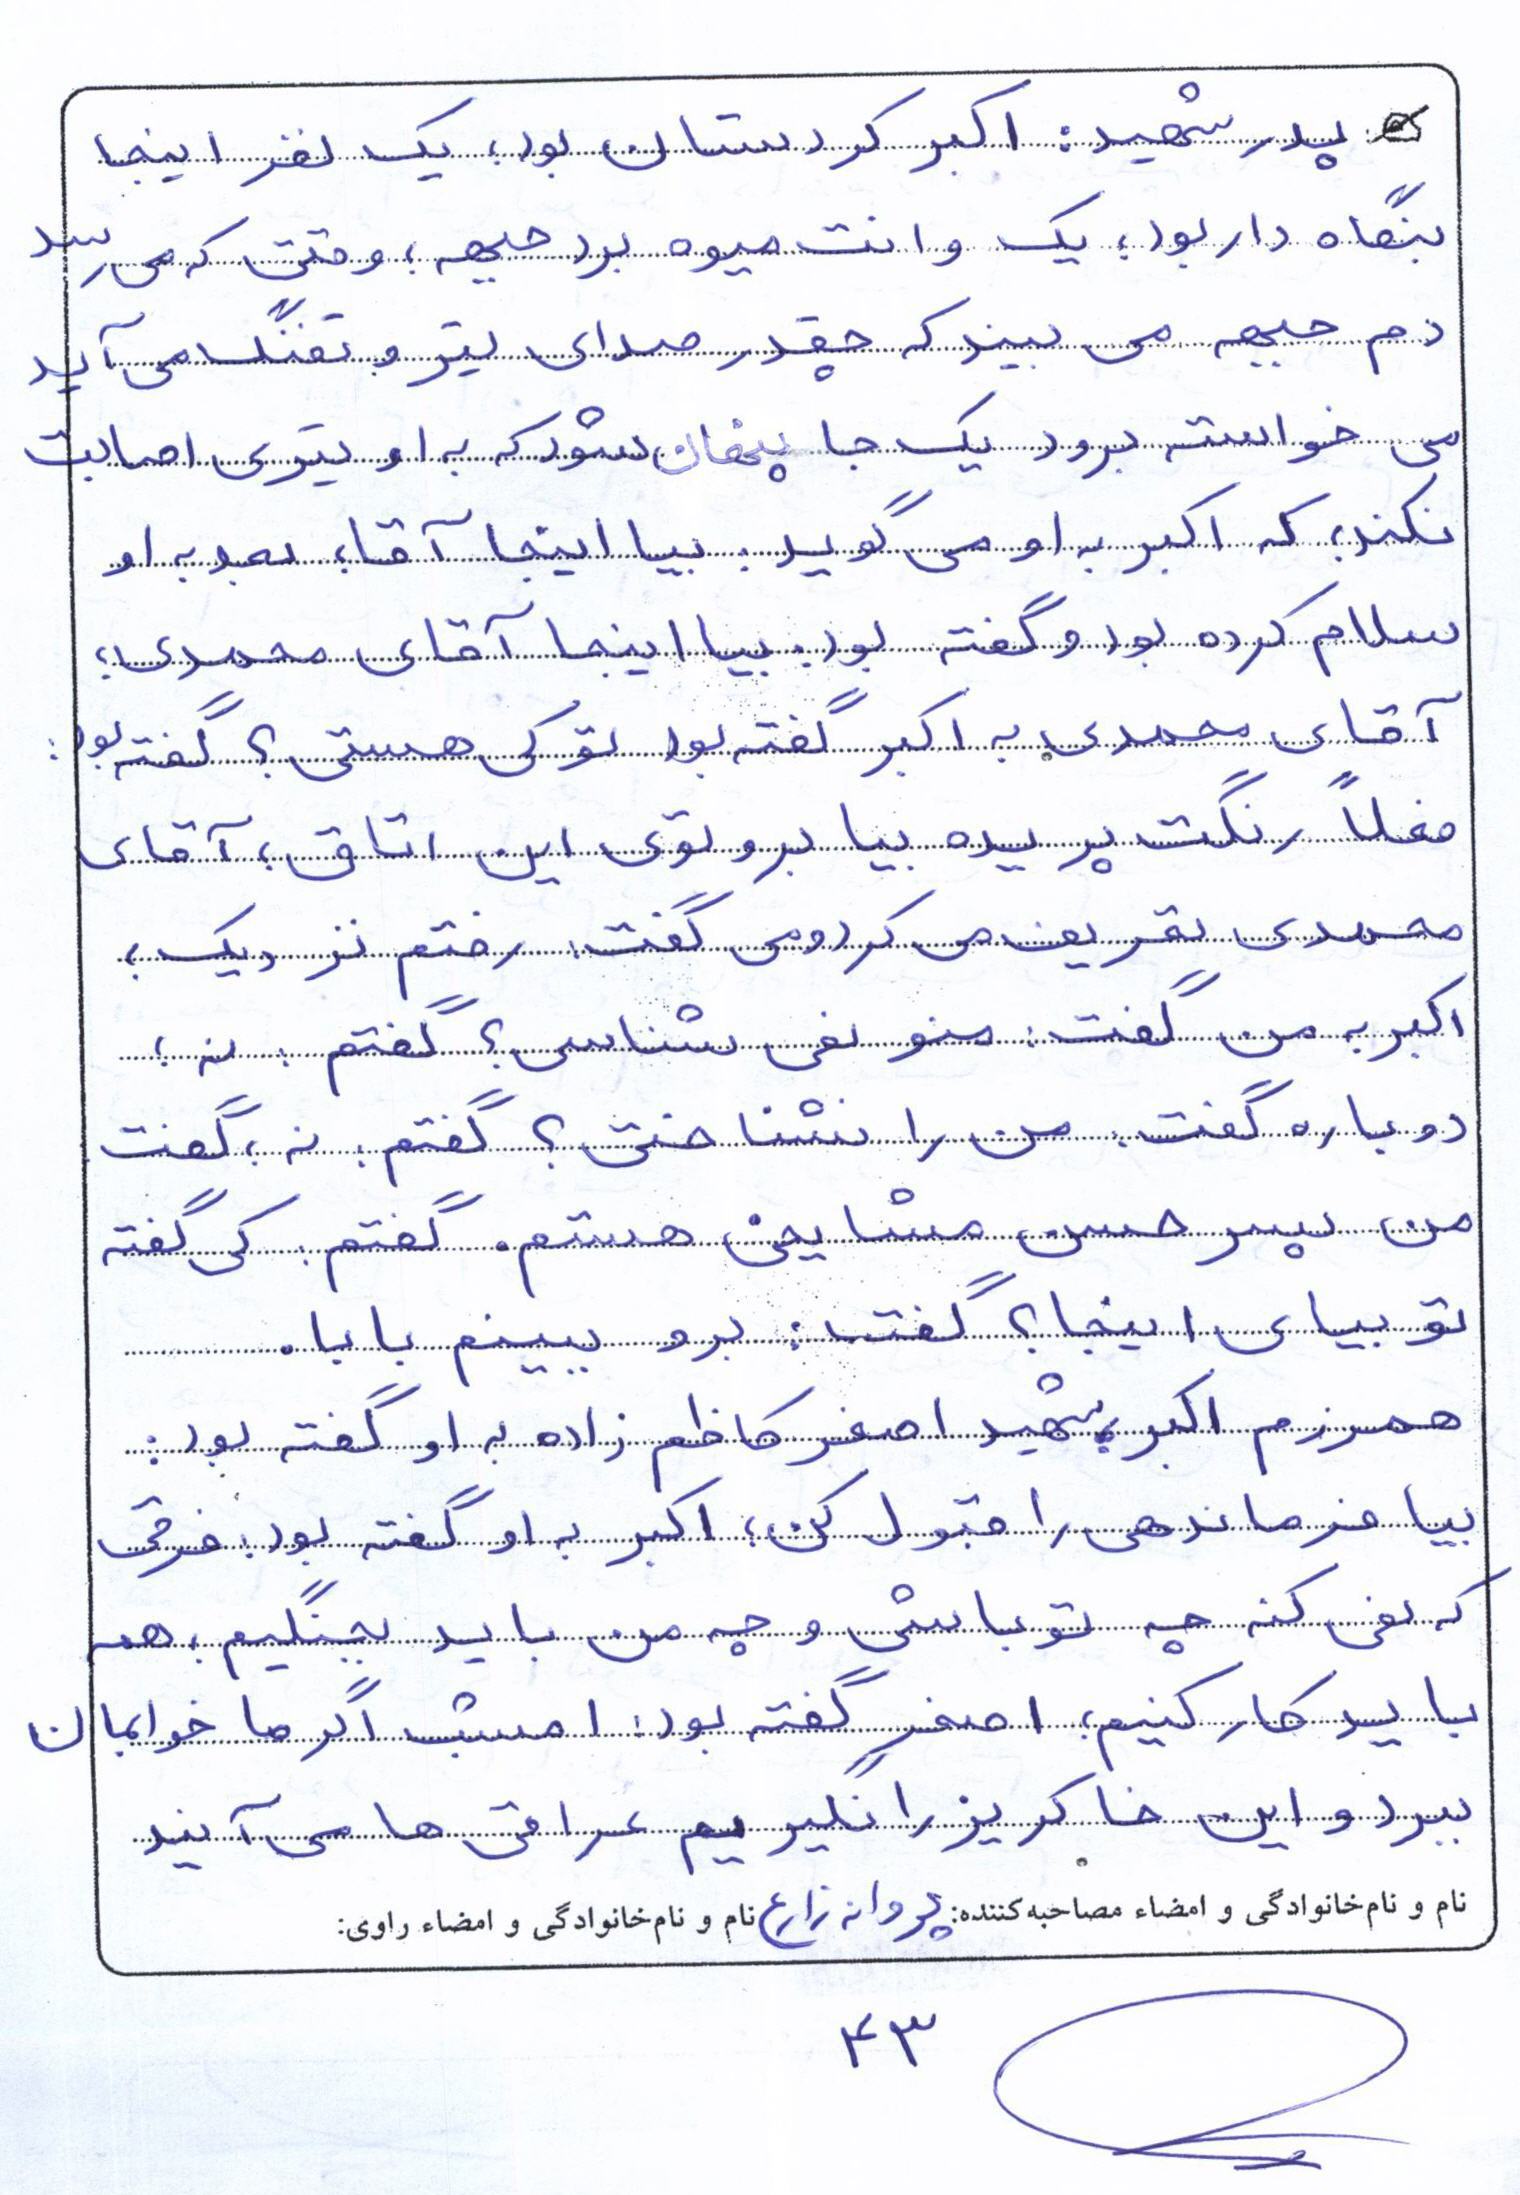 پدر شهید: اکبر کردستان بود، یک نفر اینجا
بنگاه دار بود؛ یک وانت میوه برد جبهه؛ وقتی که می رسد
دم جبهه می بیند که چقدر صدای تیر و تفنگ می آید
می خواسته برود یک جا پنهان شود که به او تیری اصابت
نکند؛ که اکبر به او می گوید: بیا اینجا آقا؛ بعد به او
سلام کرده بود و گفته بود: بیا اینجا آقای محمدی؛
آقای محمدی به اکبر گفته بود تو کی هستی؟ گفته بود:
فعلاً رنگت پریده بیا برو توی این اتاق؛ آقای
محمدی تعریف می کرد و می گفت: رفتم نزدیک؛
اکبر به من گفت: منو نمی شناسی؟ گفتم: نه؛
دوباره گفت: من را نشناختی؟ گفتم: نه؛ گفت
من پسر حسن مشایخی هستم. گفتم: کی گفته
تو بیای اینجا؟ گفت: برو ببینم بابا.
همرزم اکبر، شهید اصغر کاظم زاده به او گفته بود:
بیا فرماندهی را قبول کن؛ اکبر به او گفته بود: فرقی
که نمی کنه چه تو باشی و چه من باید بجنگیم، همه
باید کار کنیم؛ اصغر گفته بود: امشب اگر ما خوابمان
ببرد و این خاکریز را نگیریم عراقی ها می آیند
نام و نام‌خانوادگی و امضاء مصاحبه‌کننده: پروانه زارع نام و نام‌خانوادگی و امضاء راوی:
۴۳